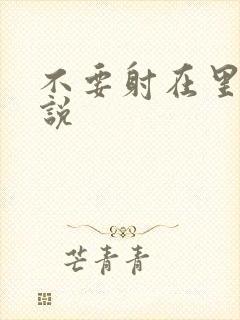 不要射在里
說
芒青青